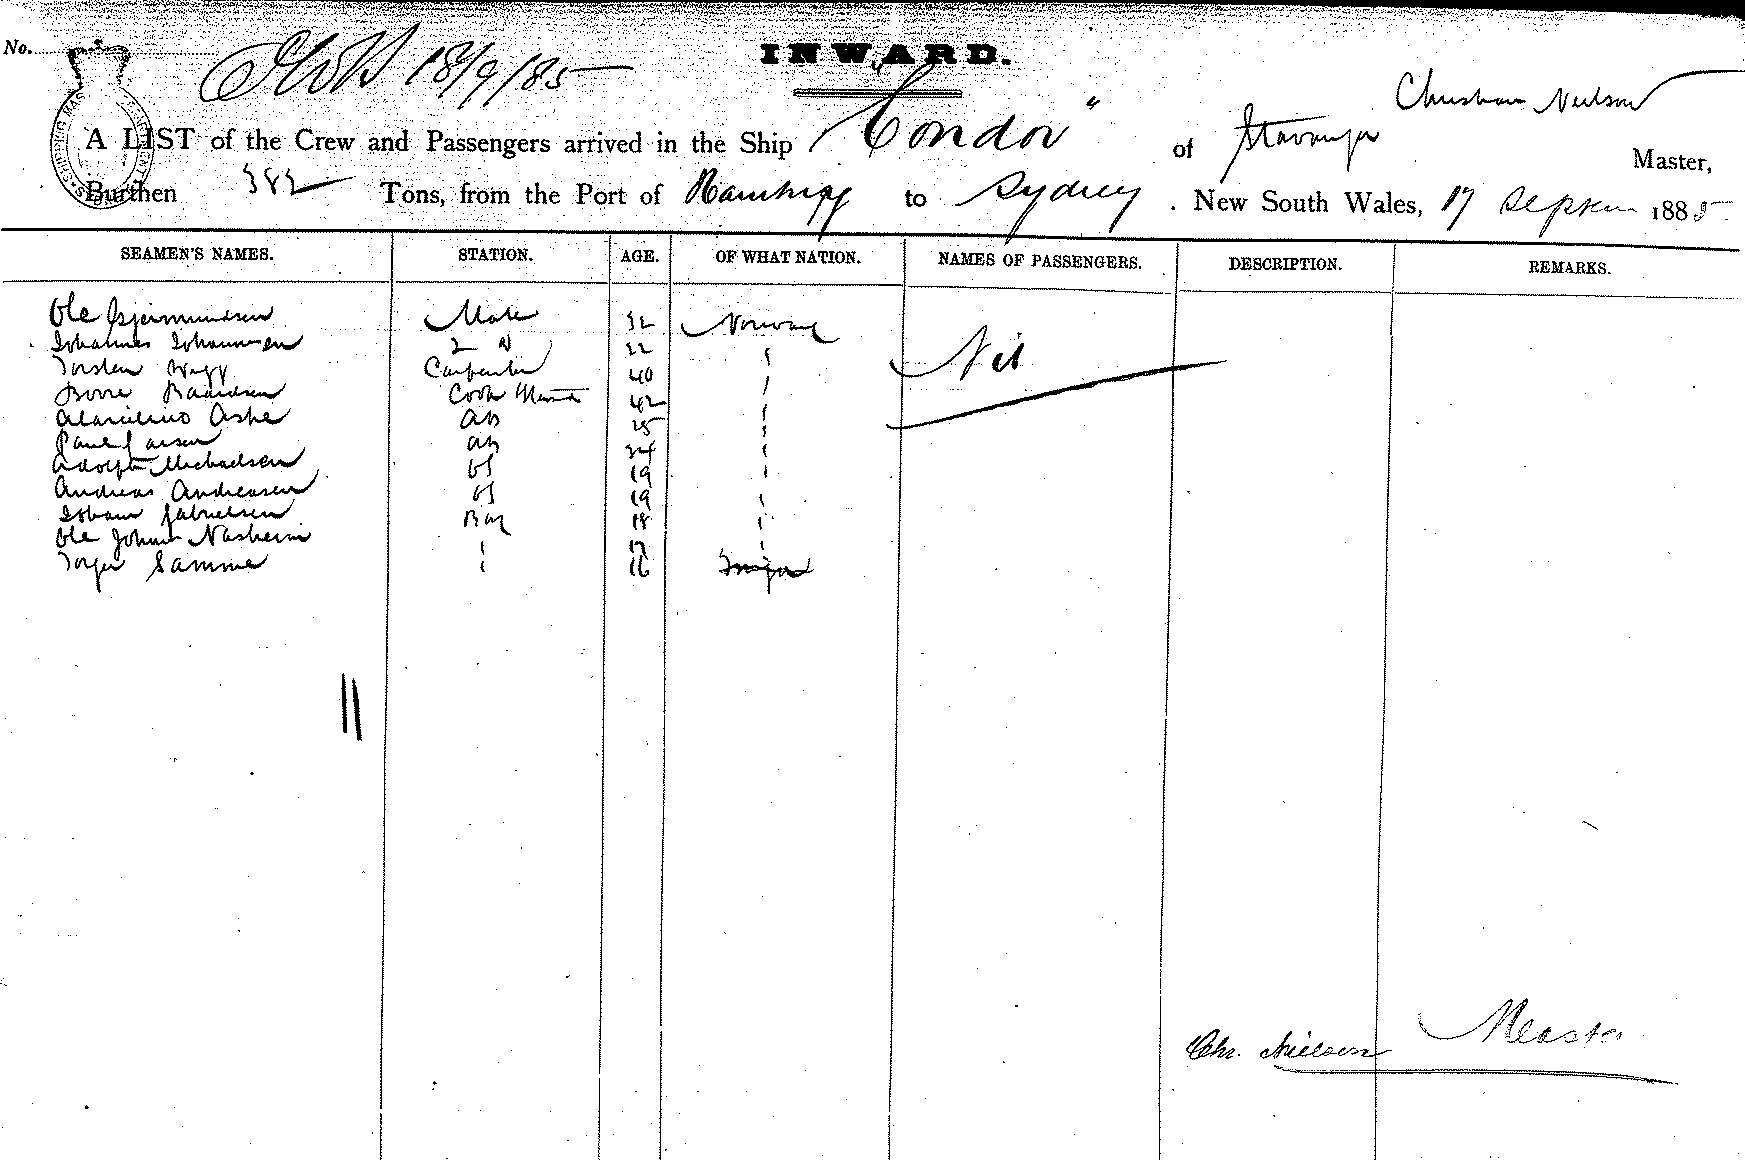 No.
18/9/85
INWARD.
Christian Neilson
A LIST of the Crew and Passengers arrived in the Ship "Condor" of Stavanger Master,
Burthen 382 Tons, from the Port of to Sydney. New South Wales, 17 1885.
SEAMEN'S NAMES. STATION. AGE. OF WHAT NATION. NAMES OF PASSENGERS. DESCRIPTION. REMARKS.
Ole Mate 32 Norway Nil
Johannes Johannesen 2 " 22 "
Torsten Carpenter 40 "
Cook 42 "
AB 25 "
Paul Larsen AB 24 "
Adolph Michaelsen OS 19 "
Andreas Andreasen OS 19 "
Johan Gabrielsen Boy 18 "
Ole Johan 17 "
Samme " 16
11
Chr. Nielsen Master